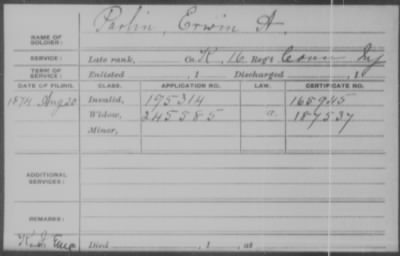 Parlin, Erwin A.
NAME OF SOLDIER:
SERVICE: Late rank, Co. K, 16 Reg't Conn Inf
TERM OF SERVICE: Enlisted , 1 Discharged , 1
DATE OF FILING. CLASS. APPLICATION NO. LAW. CERTIFICATE NO.
1874 Aug 20 Invalid, 195314 168945
Widow, 245585 187537
Minor,
ADDITIONAL SERVICES:
REMARKS:
Died , 1 , at